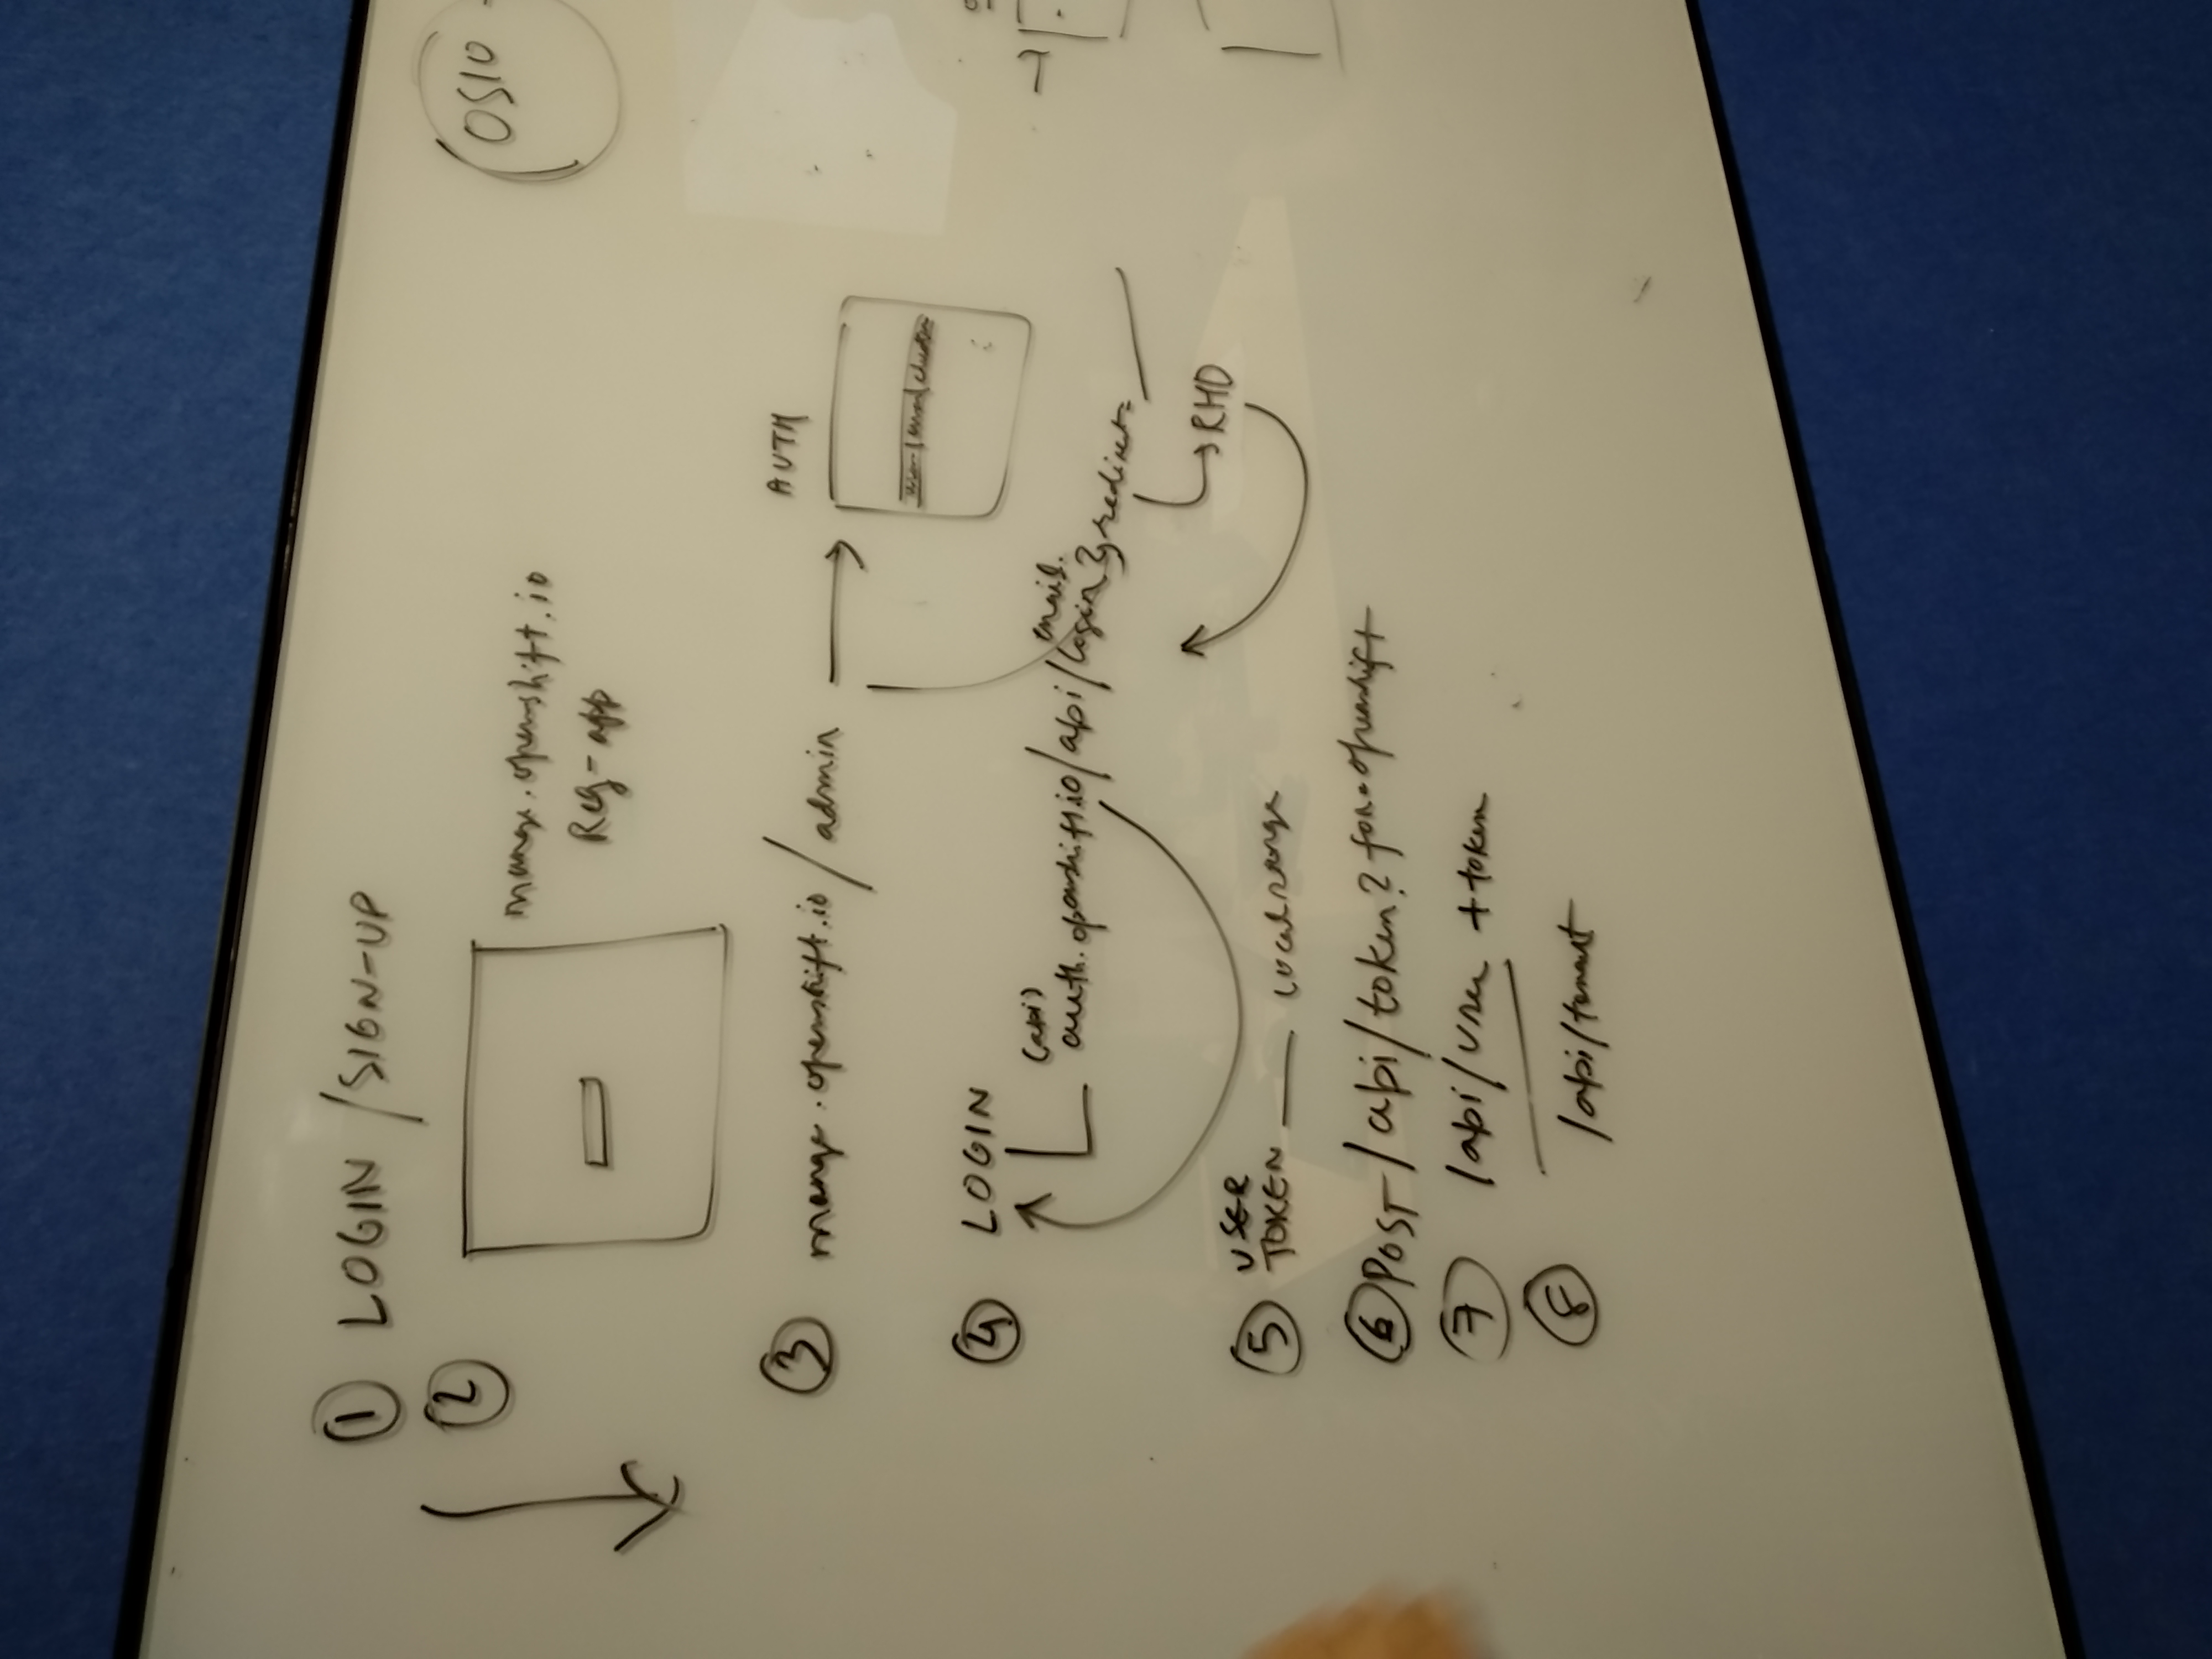 ① LOGIN / SIGN-UP
②
mange.openshift.io
Reg-app
OSIO
③ mange.openshift.io / admin
AUTH
④ LOGIN
(api)
email.
auth.openshift.io/api/login?redirect=
RHD
⑤ USER
TOKEN
⑥ POST /api/token?for=openshift
⑦ /api/user + token
⑧ /api/tenant